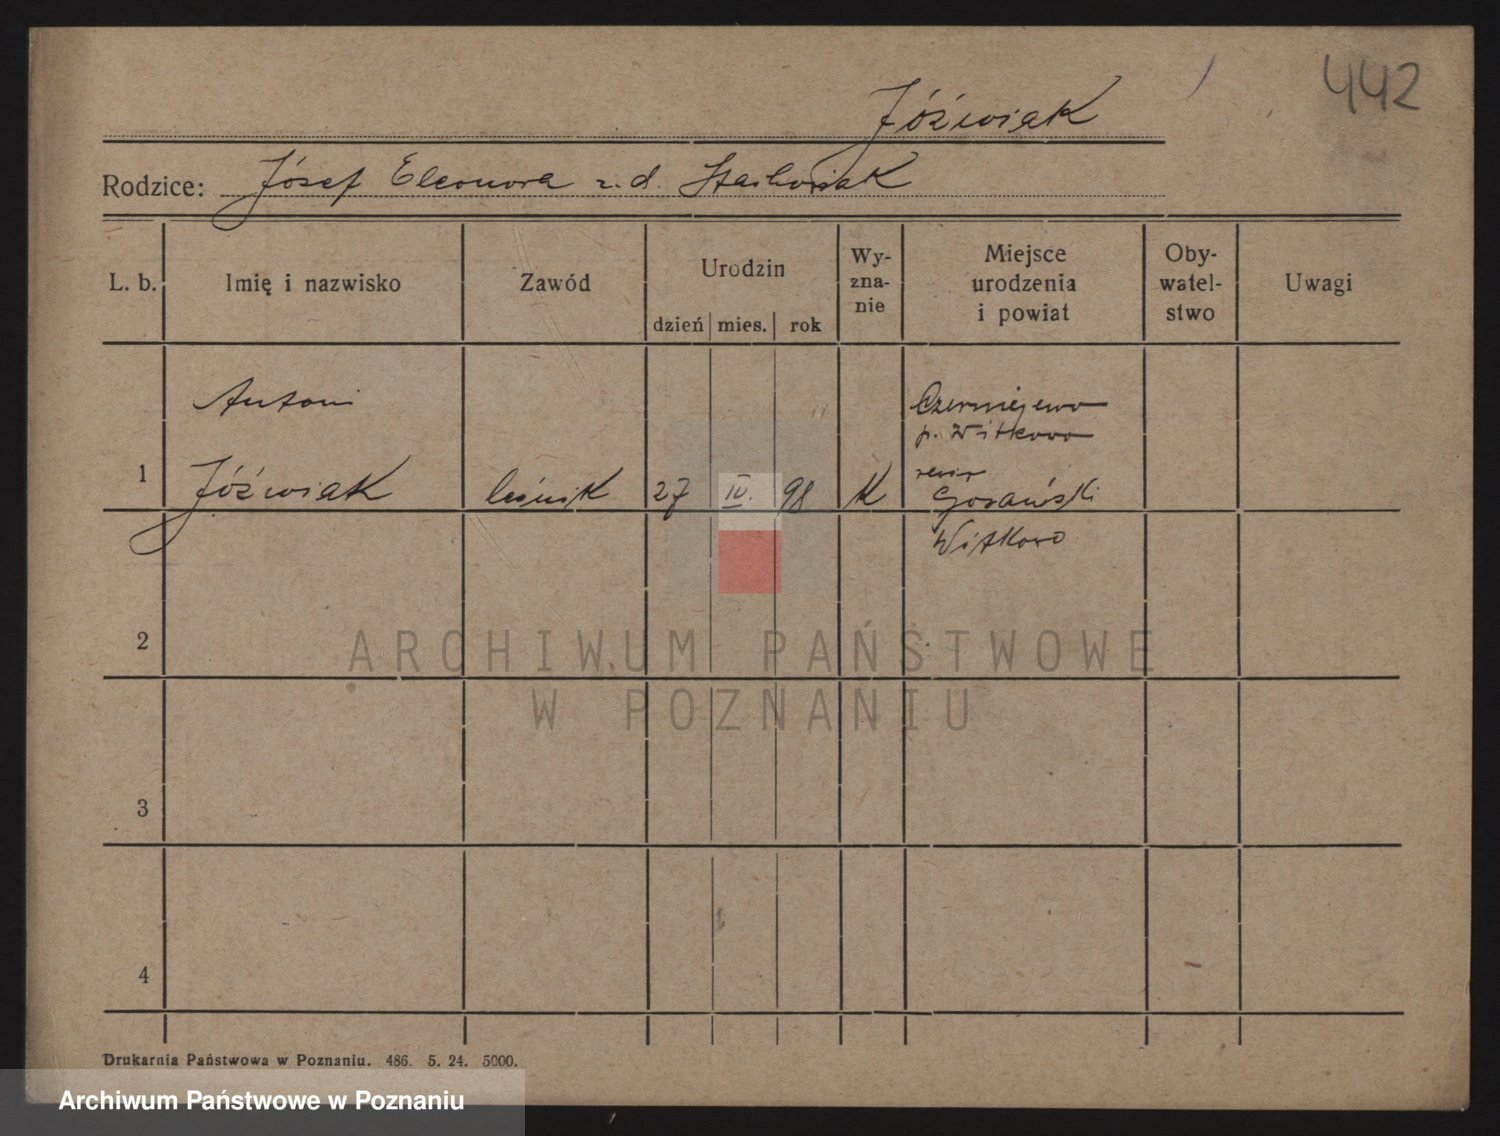 442
Jóźwiak
Rodzice: Józef Eleonora z. d. Stachowiak
L. b. Imię i nazwisko Zawód Urodzin dzień mies. rok Wy-zna-nie Miejsce urodzenia i powiat Oby-watel-stwo Uwagi
Antoni Czerniejewo
p. Witkowo
1 Jóźwiak leśnik 27 IV. 98 K Gozański
Witkowo
2
3
4
ARCHIWUM PAŃSTWOWE
W POZNANIU
Drukarnia Państwowa w Poznaniu. 486. 5. 24. 5000.
Archiwum Państwowe w Poznaniu